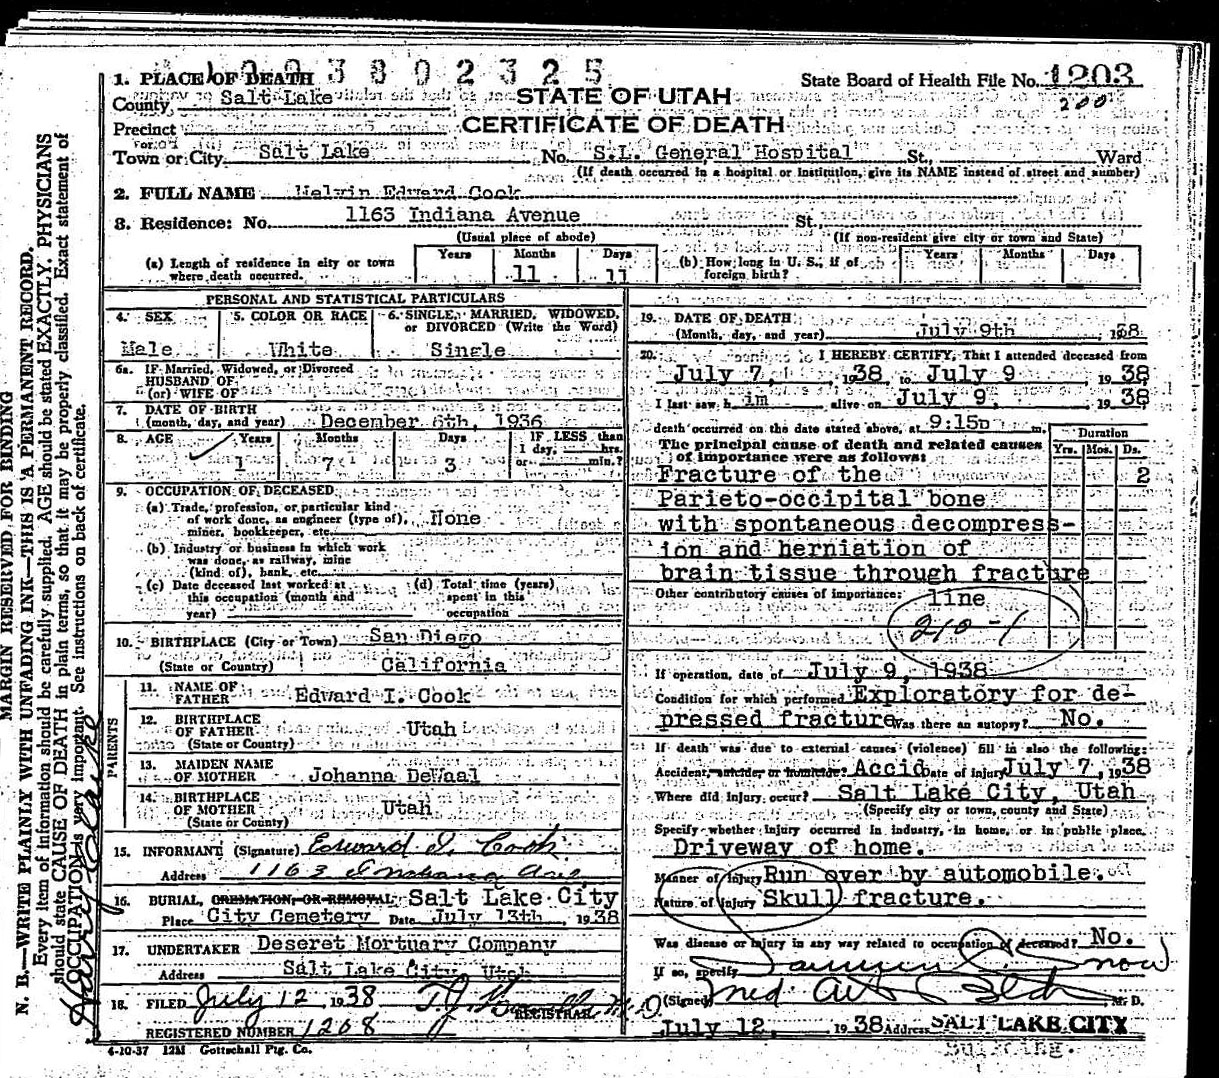 1. PLACE OF DEATH
009380 2325
State Board of Health File No. 1203
200
County Salt Lake
STATE OF UTAH
Precinct
CERTIFICATE OF DEATH
Town or City Salt Lake No. S.L. General Hospital St., Ward
(If death occurred in a hospital or institution, give its NAME instead of street and number)
2. FULL NAME Melvin Edward Cook
3. Residence: No. 1163 Indiana Avenue St.,
(Usual place of abode) (If non-resident give city or town and State)
(a) Length of residence in city or town where death occurred. Years Months 11 Days 11
(b) How long in U. S., if of foreign birth? Years Months Days
PERSONAL AND STATISTICAL PARTICULARS
4. SEX 5. COLOR OR RACE 6. SINGLE, MARRIED, WIDOWED, or DIVORCED (Write the Word)
Male White Single
6a. IF Married, Widowed, or Divorced
HUSBAND OF
(or) WIFE OF
7. DATE OF BIRTH
(month, day, and year) December 6th, 1936
8. AGE Years Months Days IF LESS than
1 day, hrs.
or min.?
1 7 3
9. OCCUPATION OF DECEASED
(a) Trade, profession, or particular kind
of work done, as engineer (type of), None
miner, bookkeeper, etc.
(b) Industry or business in which work
was done, as railway, mine
(kind of), bank, etc.
(c) Date deceased last worked at
this occupation (month and
year)
(d) Total time (years)
spent in this
occupation
10. BIRTHPLACE (City or Town) San Diego
(State or Country) California
PARENTS
11. NAME OF
FATHER Edward I. Cook
12. BIRTHPLACE
OF FATHER Utah
(State or Country)
13. MAIDEN NAME
OF MOTHER Johanna DeWaal
14. BIRTHPLACE
OF MOTHER Utah
(State or County)
15. INFORMANT (Signature) Edward I. Cook
Address 1163 Indiana Ave
16. BURIAL, CREMATION, OR REMOVAL: Salt Lake City
Place City Cemetery Date July 13th, 1938
17. UNDERTAKER Deseret Mortuary Company
Address Salt Lake City, Utah
18. FILED July 12, 1938
REGISTRAR
REGISTERED NUMBER 1208
4-10-37 12M Gottschall Ptg. Co.
19. DATE OF DEATH
(Month, day, and year) July 9th, 1938
20. I HEREBY CERTIFY, That I attended deceased from
July 7, 1938, to July 9, 1938
I last saw him alive on July 9, 1938
death occurred on the date stated above, at 9:15p m.
The principal cause of death and related causes
of importance were as follows:
Duration
Yrs. Mos. Ds.
Fracture of the 2
Parieto-occipital bone
with spontaneous decompress-
ion and herniation of
brain tissue through fracture
Other contributory causes of importance: line
210-1
If operation, date of July 9, 1938
Condition for which performed Exploratory for de-
pressed fracture Was there an autopsy? No.
If death was due to external causes (violence) fill in also the following:
Accident, suicide, or homicide? Accid Date of Injury July 7, 1938
Where did injury occur? Salt Lake City, Utah
(Specify city or town, county and State)
Specify whether injury occurred in industry, in home, or in public place.
Driveway of home.
Manner of Injury Run over by automobile.
Nature of Injury Skull fracture.
Was disease or injury in any way related to occupation of deceased? No.
If so, specify
(Signed) M. D.
July 12, 1938 Address SALT LAKE CITY
MARGIN RESERVED FOR BINDING
N. B.—WRITE PLAINLY WITH UNFADING INK—THIS IS A PERMANENT RECORD.
Every item of information should be carefully supplied. AGE should be stated EXACTLY. PHYSICIANS
should state CAUSE OF DEATH in plain terms, so that it may be properly classified. Exact statement of
OCCUPATION is very important. See instructions on back of certificate.